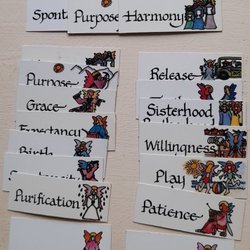 Spont
Purpose
Harmony
Purpose
Grace
Expectancy
Birth
Purification
Release
Sisterhood
Willingness
Play
Patience